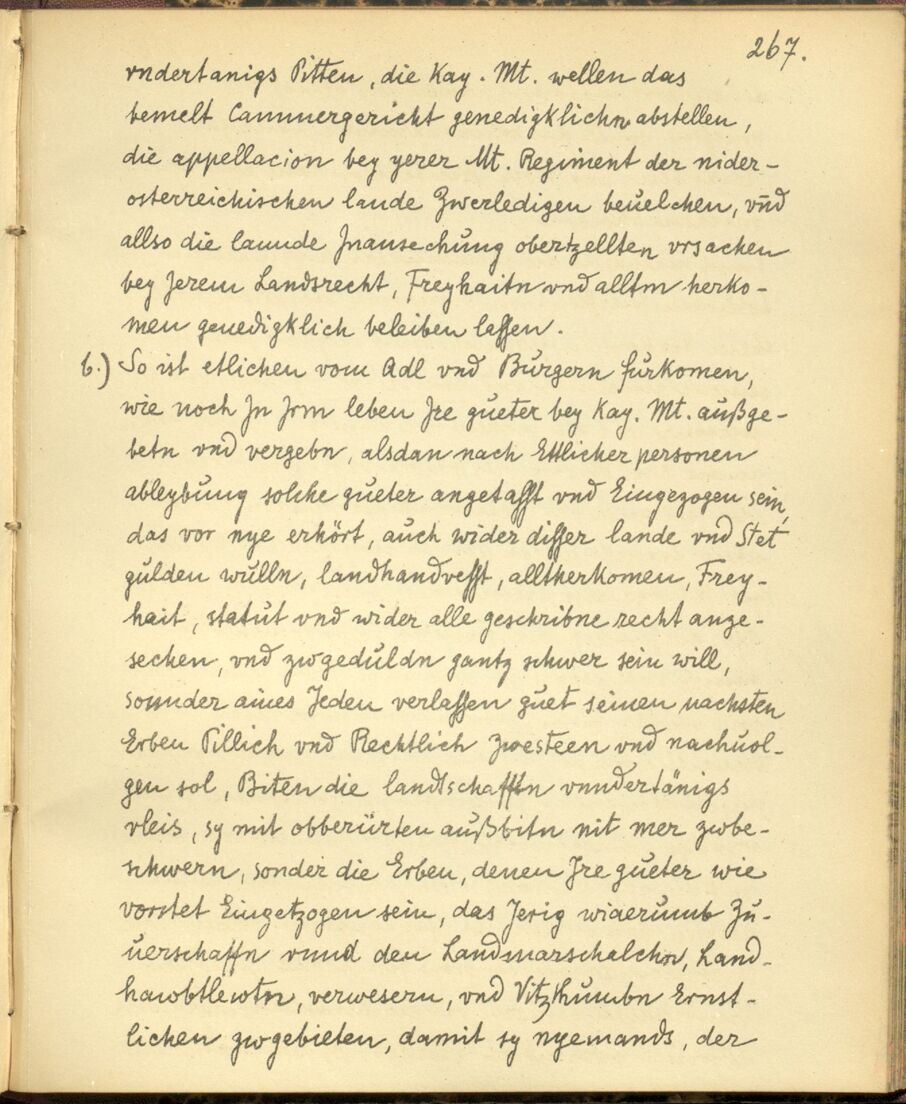 267.
vndertanigs Pitten, die Kay. Mt. wellen das
bemelt Cammergericht genedigklichn abstellen,
die appellacion bey yerer Mt. Regiment der nider-
osterreichischen lande Zwerledigen beuelchen, vnd
allso die launde Jnansechung obertzellten vrsachen
bey Jerem Landsrecht, Freyhaitn vnd alltm herko-
men genedigklich beleiben lassen.
6.) So ist etlichen vom Adl vnd Burgern furkomen,
wie noch Jn Jrm leben Jre gueter bey Kay. Mt. außge-
betn vnd vergebn, alsdan nach Ettlicher personen
ableybung solche gueter angetasst vnd Eingezogen sein,
das vor nye erhört, auch wider disser lande vnd Stet
gulden wulln, landhandvesst, alltherkomen, Frey-
hait, statut vnd wider alle geschribne recht ange-
sechen, vnd zwgeduldn gantz schwer sein will,
sounder aines Jeden verlassen guet seinen nachsten
Erben Pillich vnd Rechtlich zwesteen vnd nachuol-
gen sol, Biten die landtschafftn vnndertänigs
vleis, sy mit obberürten außbitn nit mer zwbe-
schwern, sonder die Erben, denen Jre gueter wie
vorstet Eingetzogen sein, das Jerig widerumb Zu-
uerschaffn vnnd den Landmarschalchn, Land-
hawbtlewtn, verwesern, vnd Vitzthumbn Ernst-
lichen zwgebieten, damit sy nyemands, der